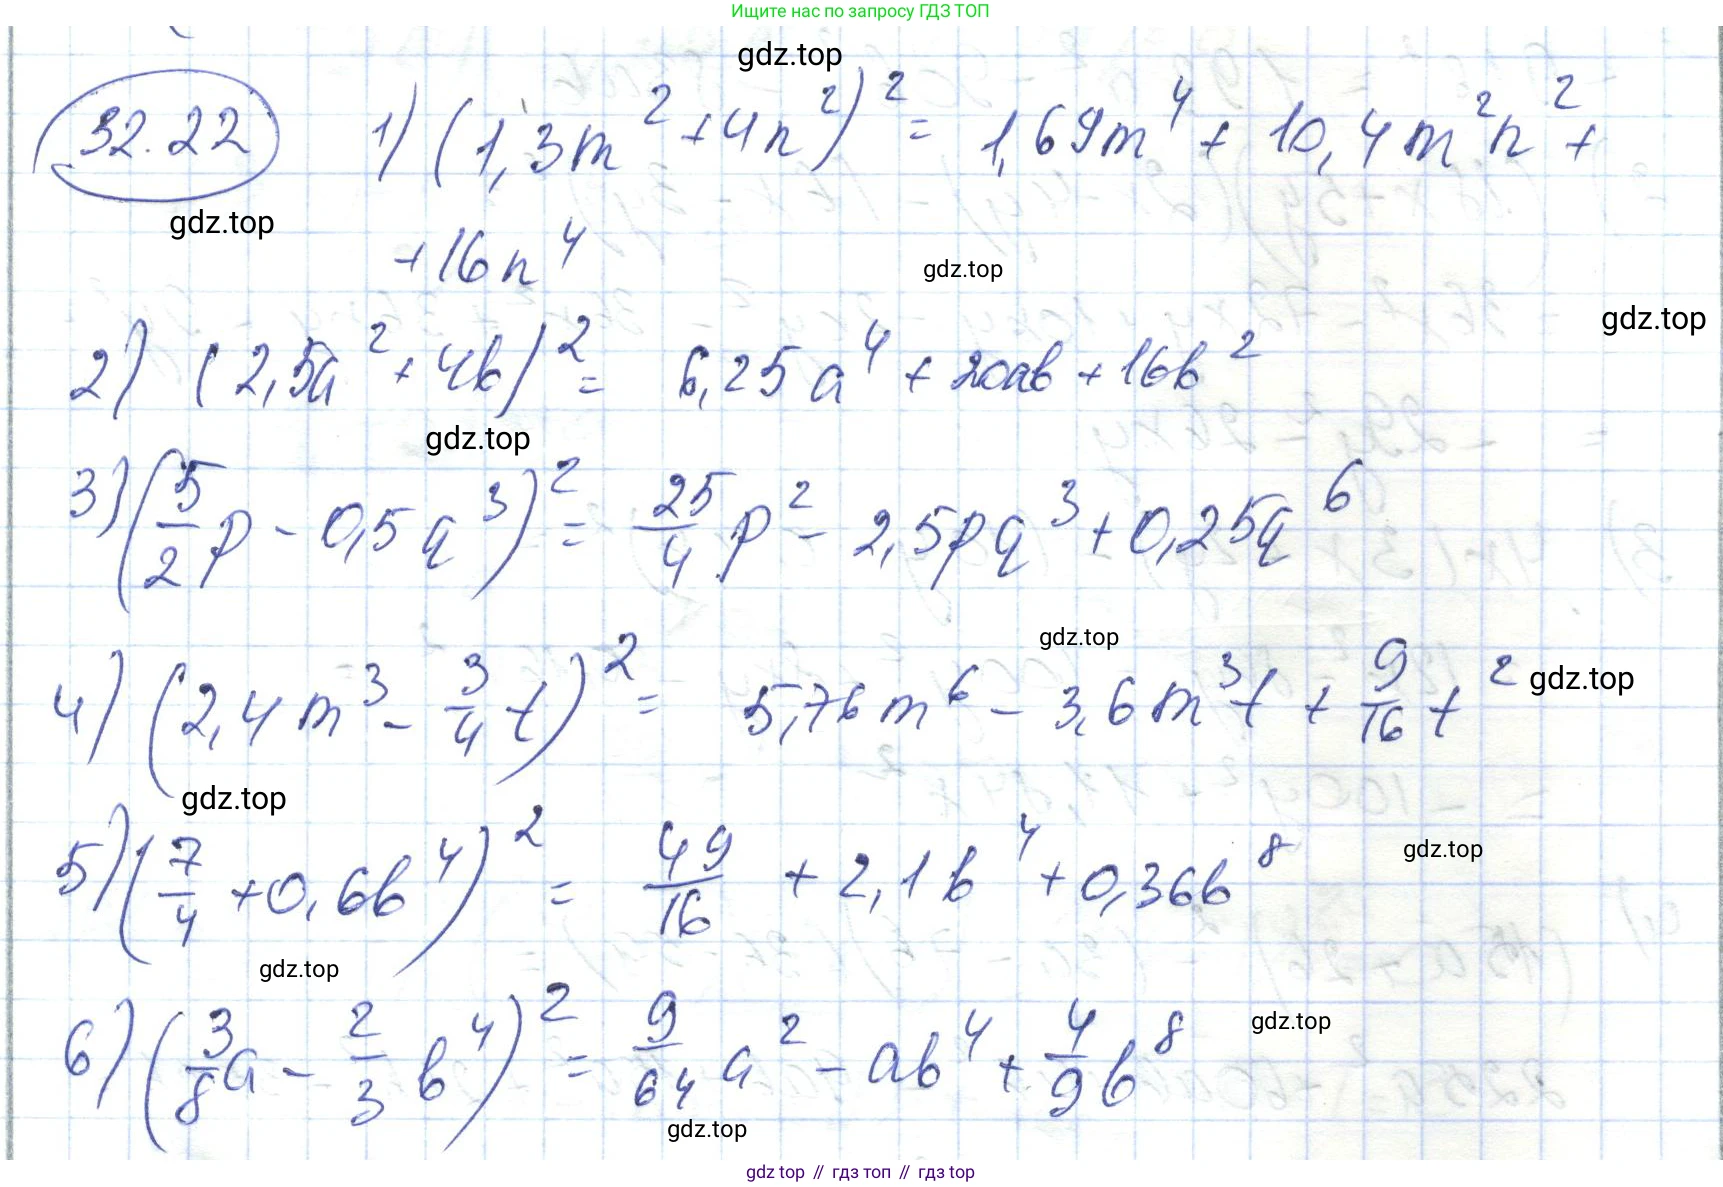 Ищите нас по запросу ГДЗ ТОП
gdz.top
32.22 1) (1,3m² + 4n²)² = 1,69m⁴ + 10,4m²n² +
gdz.top
+ 16n⁴
gdz.top
gdz.top
2) (2,5a² + 4b)² = 6,25a⁴ + 20ab + 16b²
gdz.top
3) (5/2 p - 0,5q³)² = 25/4 p² - 2,5pq³ + 0,25q⁶
gdz.top
4) (2,4m³ - 3/4 t)² = 5,76m⁶ - 3,6m³t + 9/16 t² gdz.top
gdz.top
5) (7/4 + 0,6b⁴)² = 49/16 + 2,1b⁴ + 0,36b⁸
gdz.top
gdz.top
6) (3/8 a - 2/3 b⁴)² = 9/64 a² - ab⁴ + 4/9 b⁸
gdz.top
gdz.top
gdz top // гдз топ // гдз top